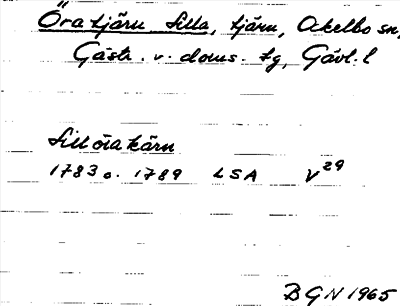 Öratjärn Lilla, tjärn, Ockelbo sn,
Gästr. v. doms. tg, Gävl. l
Lill öra kärn
1783 o. 1789 LSA V29
BGN 1965